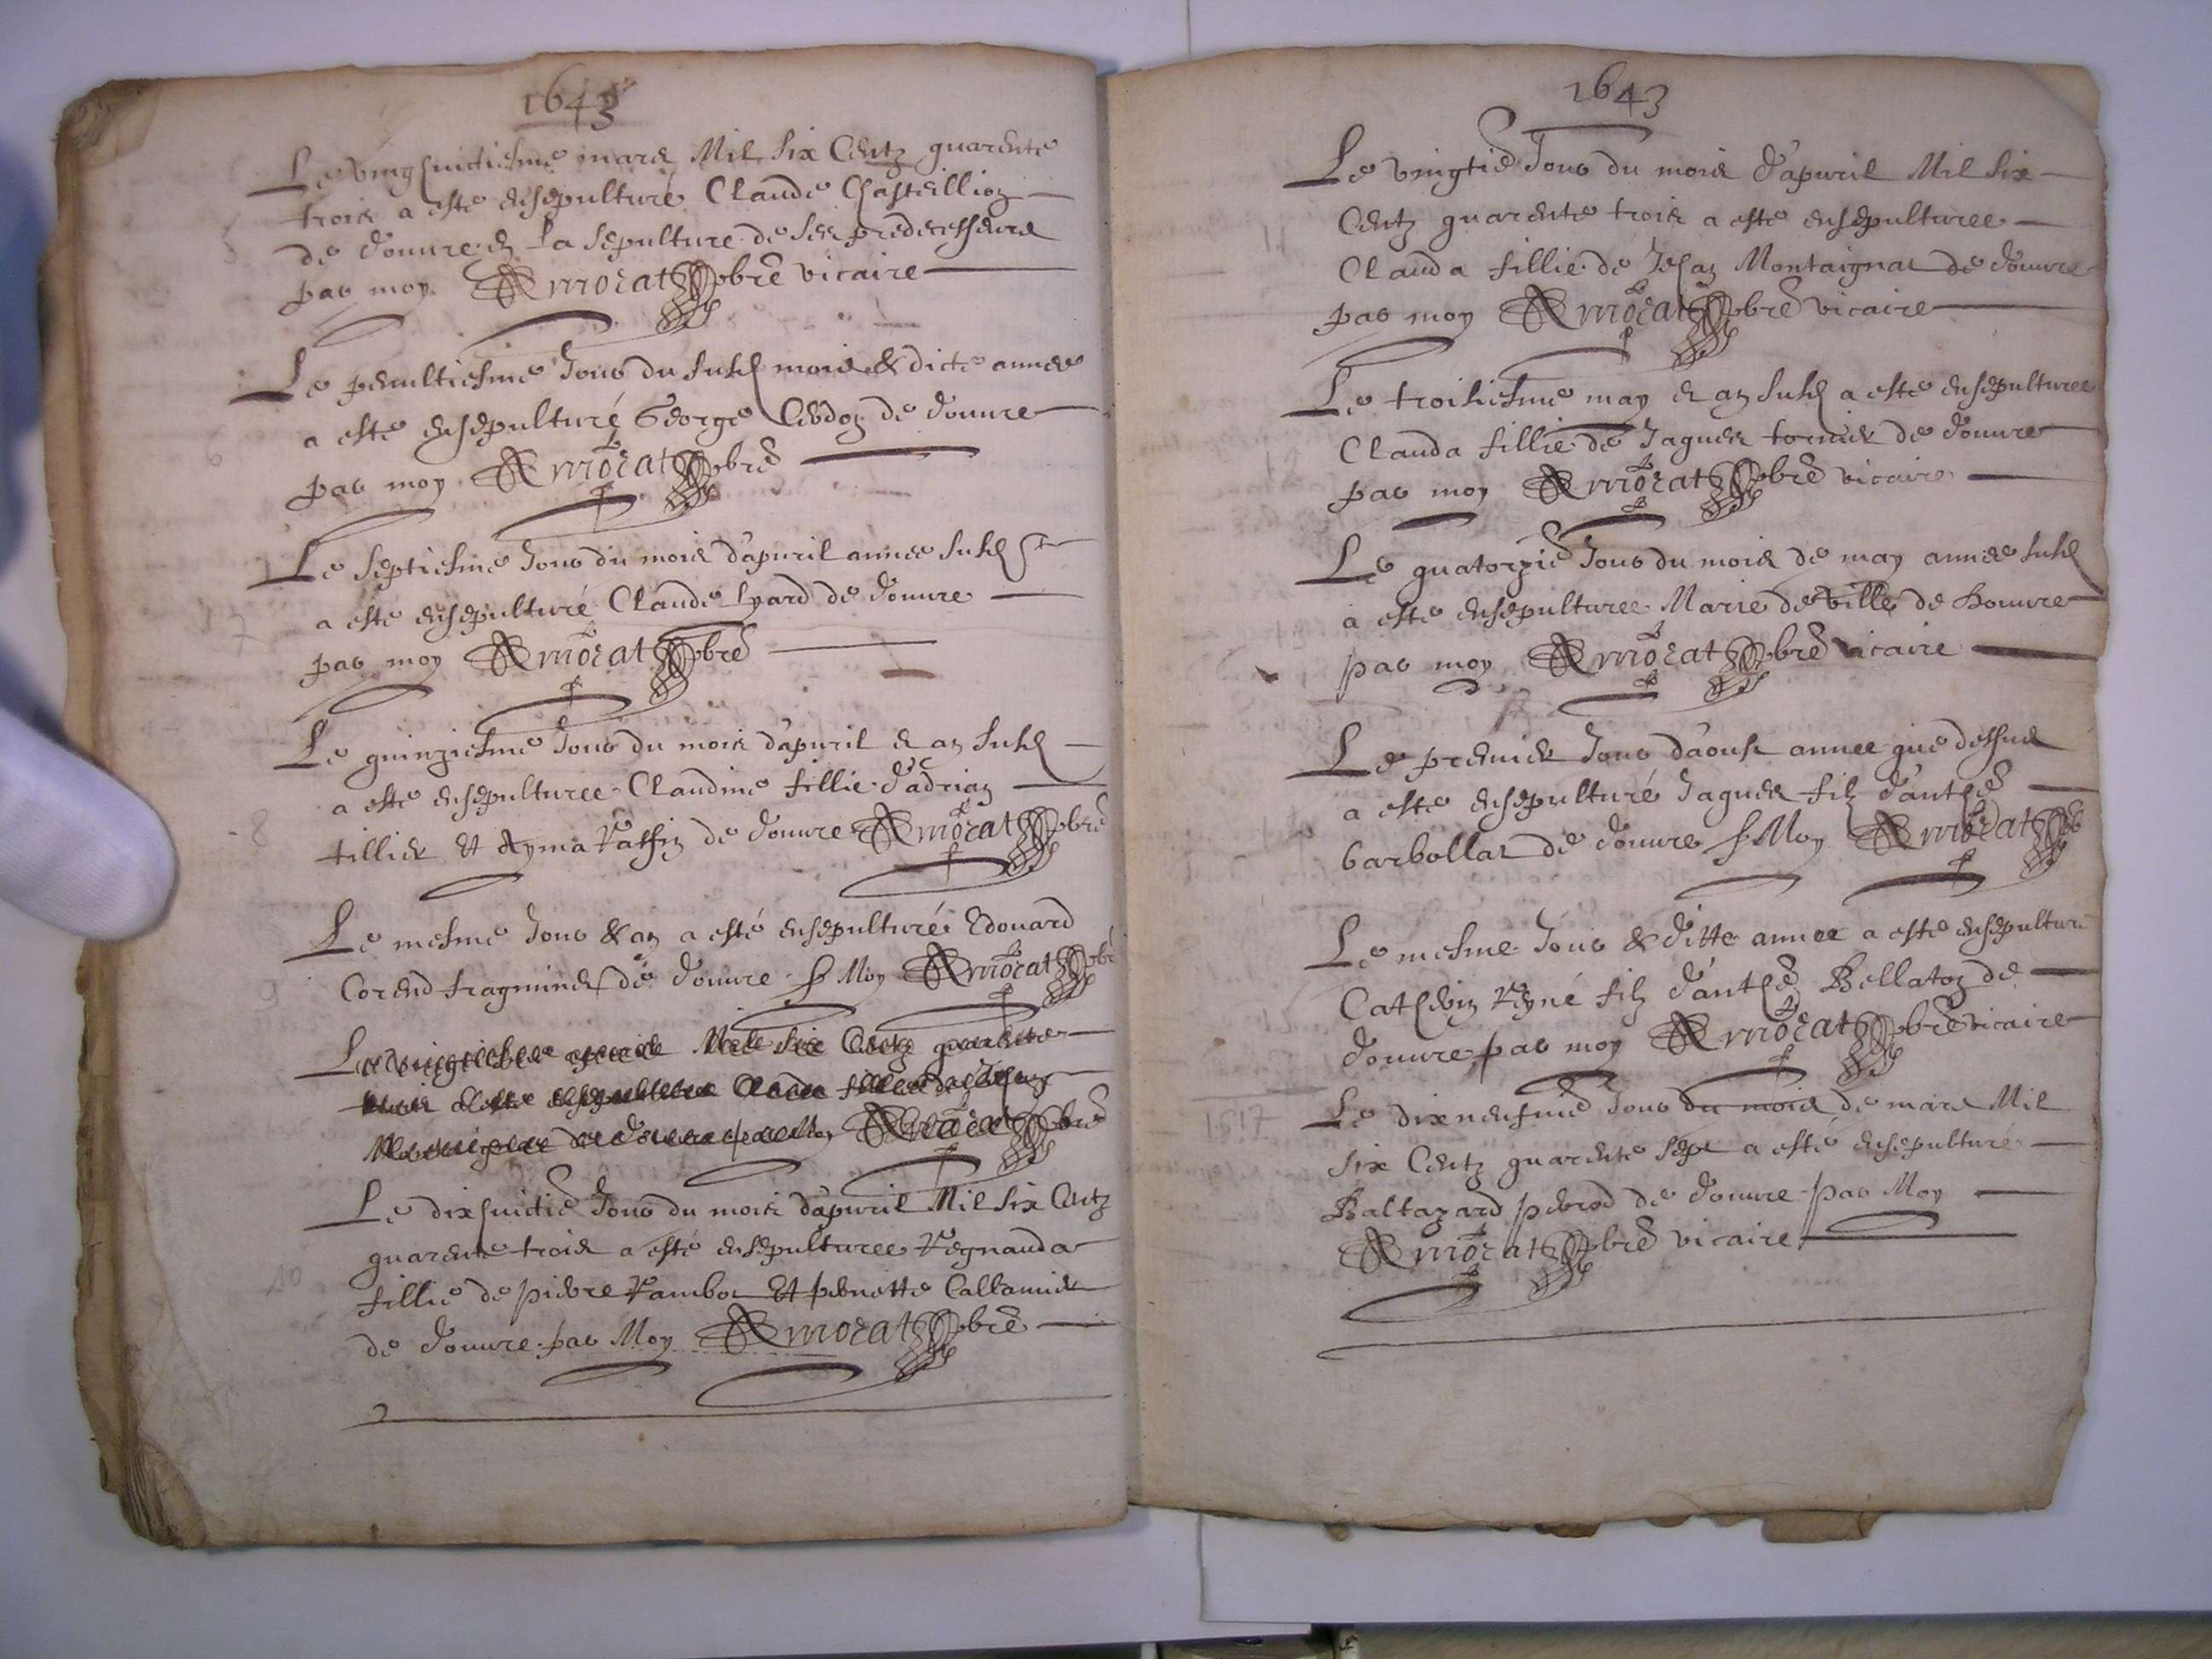 1643
Le vinghuictiesme mars Mil six Centz quarente
trois a esté ensepulturé Claude Chasteillion
de douvre en la sepulture de ses predecesseurs
par moy Morat pbre vicaire
Le penultiesme Jour du susd mois & dicte annee
a esté ensepulturé George de douvre
par moy Morat pbre
Le septiesme Jour du mois d'apvril annee susd
a esté ensepulturé Claude Lyard de douvre
par moy Morat pbre
Le quinziesme Jour du mois d'apvril & an susd
a esté ensepulturee Claudine fillie d'adrian
tillier Et Ayma de douvre Morat pbre
Le mesme Jour & an a esté ensepulturé Edouard
Corend de douvre p Moy Morat pbre
Le vingtiesme Mil six Centz quarente
trois a esté ensepulturee Clauda fillie de Jehan
Montaignat de douvre par Moy Morat pbre
Le dixhuictie Jour du mois d'apvril Mil six Centz
quarente trois a esté ensepulturee Regnauda
fillie de pierre Rambot Et pernette Callamier
de douvre par Moy Morat pbre
1643
Le vingtie Jour du mois d'apvril Mil six
Centz quarente trois a esté ensepulturee
Clauda fillie de Jehan Montaignat de douvre
par moy Morat pbre vicaire
Le troisiesme may & an susd a esté ensepulturee
Clauda fillie de Jaques tornier de douvre
par moy Morat pbre vicaire
Le quatorzie Jour du mois de may annee susd
a esté ensepulturee Marie de Ville de douvre
par moy Morat pbre vicaire
Le premier Jour d'aoust annee que dessus
a esté ensepulturé Jaques filz d'anthe
barbollat de douvre p Moy Morat pb
Le mesme Jour & ditte annee a esté ensepulturé
Catherin filz d'anthe Bellaton de
douvre par moy Morat pbre vicaire
1617
Le dixneufme Jour du mois de mars Mil
six Centz quarente sept a esté ensepulturé
Baltazard perrod de douvre par Moy
Morat pbre vicaire